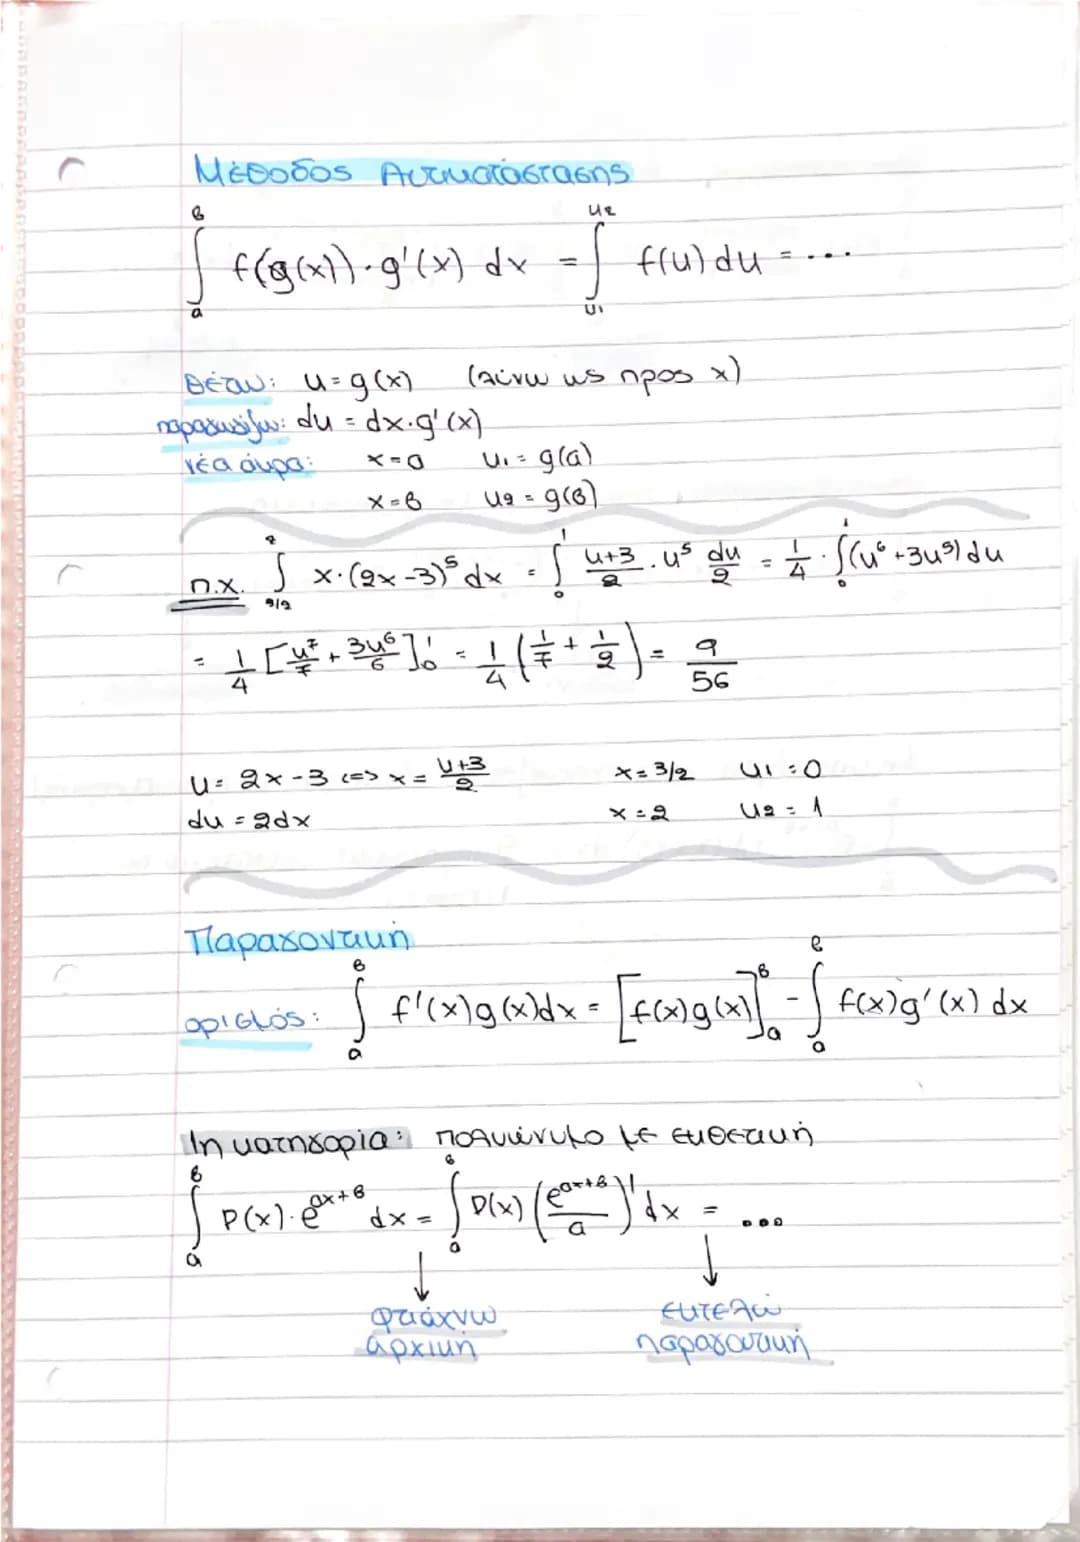 Μέθοδος Αντικατάστασης
∫_α^β f(g(x))·g'(x) dx = ∫_{u1}^{u2} f(u) du = ...
Θέτω: u = g(x) (λύνω ως προς x)
παραγωγίζω: du = dx·g'(x)
νέα άκρα: x=α u1 = g(α)
x=β u2 = g(β)
π.χ. ∫_{3/2}^2 x·(2x-3)^5 dx = ∫_0^1 (u+3)/2 · u^5 du/2 = 1/4 · ∫_0^1 (u^6+3u^5) du
= 1/4 [u^7/7 + 3u^6/6]_0^1 = 1/4 (1/7 + 1/2) = 9/56
u = 2x-3 <=> x = (u+3)/2 x = 3/2 u1 = 0
du = 2dx x = 2 u2 = 1
Παραγοντική
ορισμός: ∫_α^β f'(x)g(x)dx = [f(x)g(x)]_α^β - ∫_α^β f(x)g'(x) dx
1η κατηγορία: πολυώνυμο με εκθετική
∫_α^β P(x)·e^{αx+β} dx = ∫_α^β P(x) (e^{αx+β}/α)' dx = ...
↓ ↓
φτιάχνω εκτελώ
αρχική παραγοντική